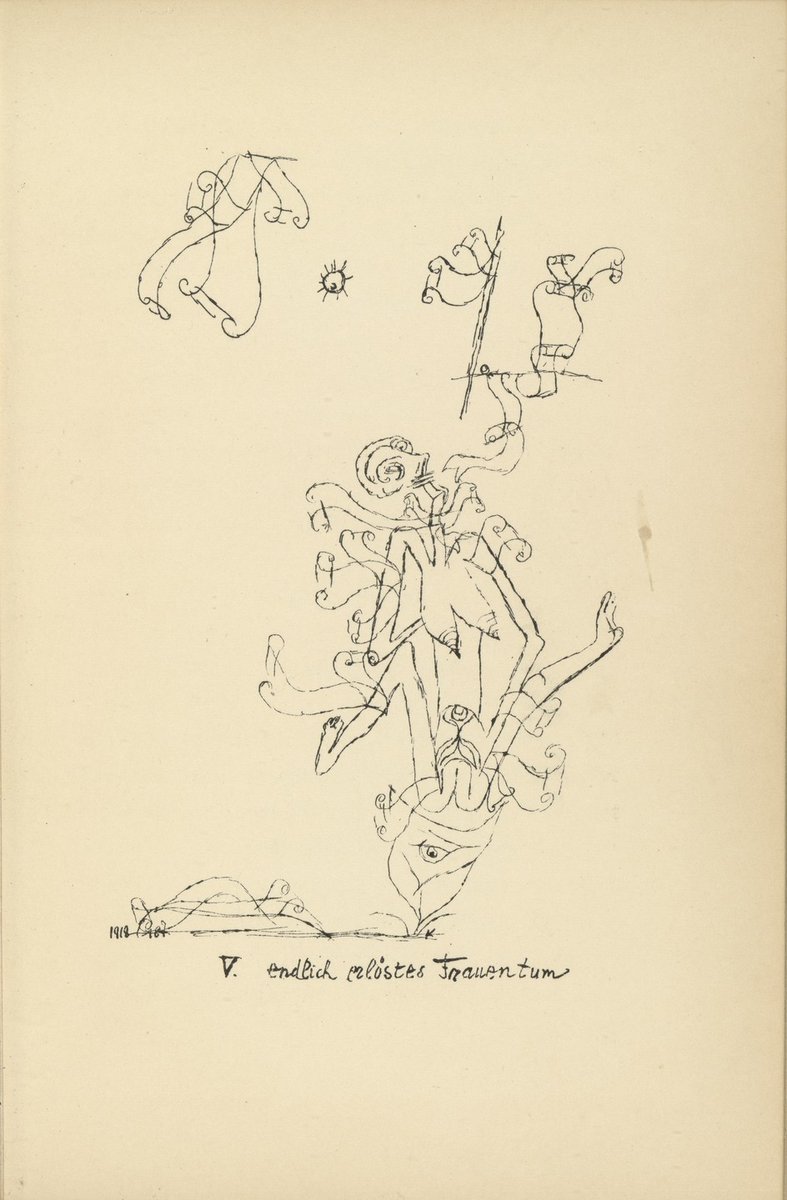 1918 187.
V. endlich erlöstes Frauentum